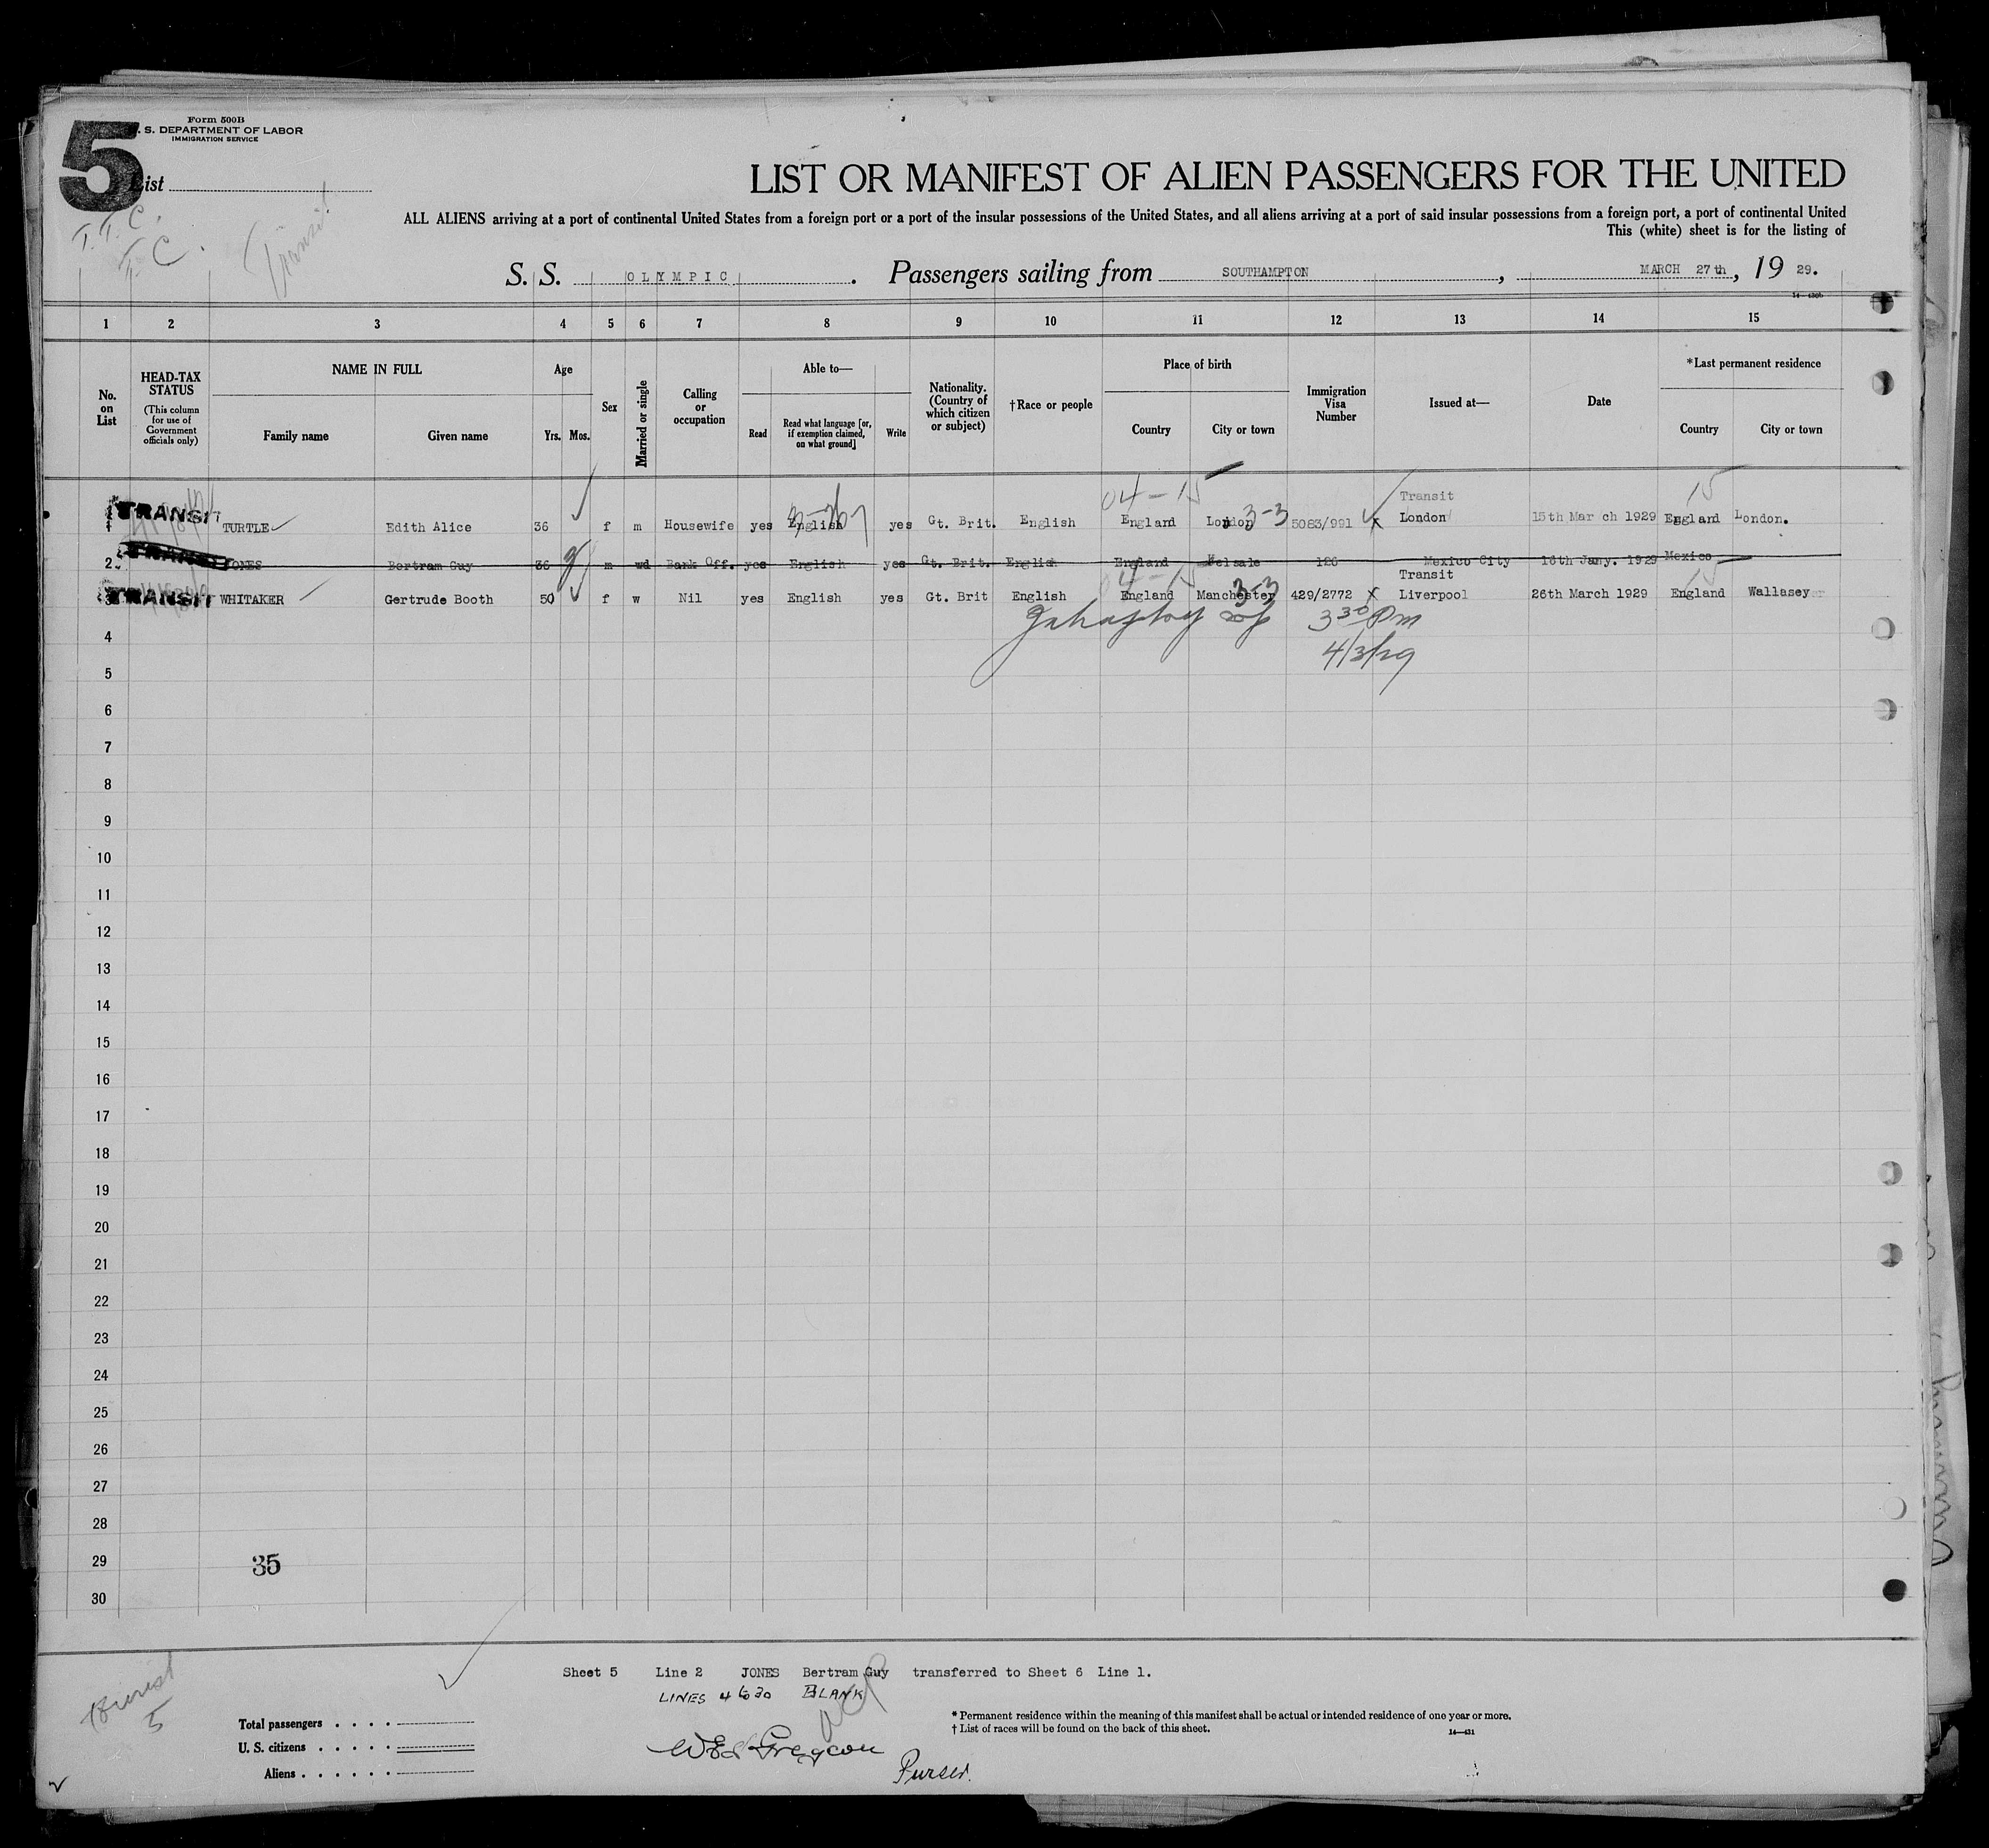 Form 500B
S. DEPARTMENT OF LABOR
IMMIGRATION SERVICE
5
List
T. T. C.
T. C.
Transit
LIST OR MANIFEST OF ALIEN PASSENGERS FOR THE UNITED
ALL ALIENS arriving at a port of continental United States from a foreign port or a port of the insular possessions of the United States, and all aliens arriving at a port of said insular possessions from a foreign port, a port of continental United
This (white) sheet is for the listing of
S. S. OLYMPIC. Passengers sailing from SOUTHAMPTON, MARCH 27th, 19 29.
1 2 3 4 5 6 7 8 9 10 11 12 13 14 15
No. on List
HEAD-TAX STATUS
(This column for use of Government officials only)
NAME IN FULL
Family name Given name
Age
Yrs. Mos.
Sex
Married or single
Calling or occupation
Able to—
Read
Read what language [or, if exemption claimed, on what ground]
Write
Nationality. (Country of which citizen or subject)
†Race or people
Place of birth
Country City or town
Immigration Visa Number
Issued at—
Date
*Last permanent residence
Country City or town
04-15 15
Transit
1 TRANSIT TURTLE Edith Alice 36 f m Housewife yes English yes Gt. Brit. English England London 3-3 5083/991 x London 15th March 1929 England London.
2 JONES Bertram Guy 36 m wd Bank Off. yes English yes Gt. Brit. English England Helsale 126 Mexico City 16th Jany. 1929 Mexico
04-15 15
Transit
3 TRANSIT WHITAKER Gertrude Booth 50 f w Nil yes English yes Gt. Brit English England Manchester 3-3 429/2772 x Liverpool 26th March 1929 England Wallasey
3 30 Pm
4/3/29
4
5
6
7
8
9
10
11
12
13
14
15
16
17
18
19
20
21
22
23
24
25
26
27
28
29
35
30
Sheet 5 Line 2 JONES Bertram Guy transferred to Sheet 6 Line 1.
LINES 4 to 30 BLANK
5
Total passengers . . . .
U. S. citizens . . . . .
Aliens . . . . . .
* Permanent residence within the meaning of this manifest shall be actual or intended residence of one year or more.
† List of races will be found on the back of this sheet.
14—431
Purser.